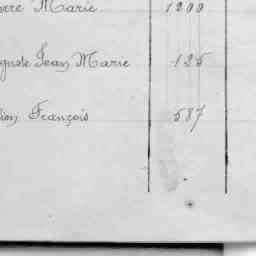 erre Marie 1200
guste Jean Marie 125
ion François 587